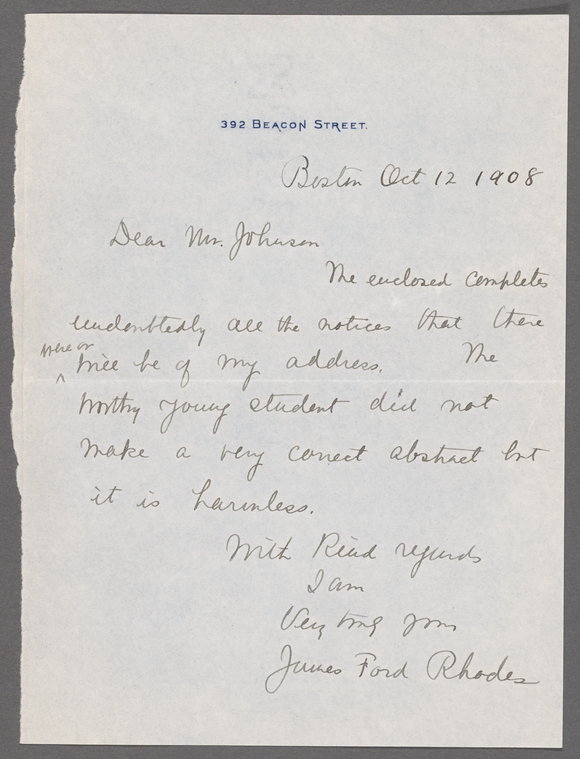 392 BEACON STREET.
Boston Oct 12 1908
Dear Mr. Johnson
The enclosed completes
undoubtedly all the notices that there
were or
will be of my address. The
worthy young student did not
make a very correct abstract but
it is harmless.
With Kind regards
I am
Very truly yours
James Ford Rhodes